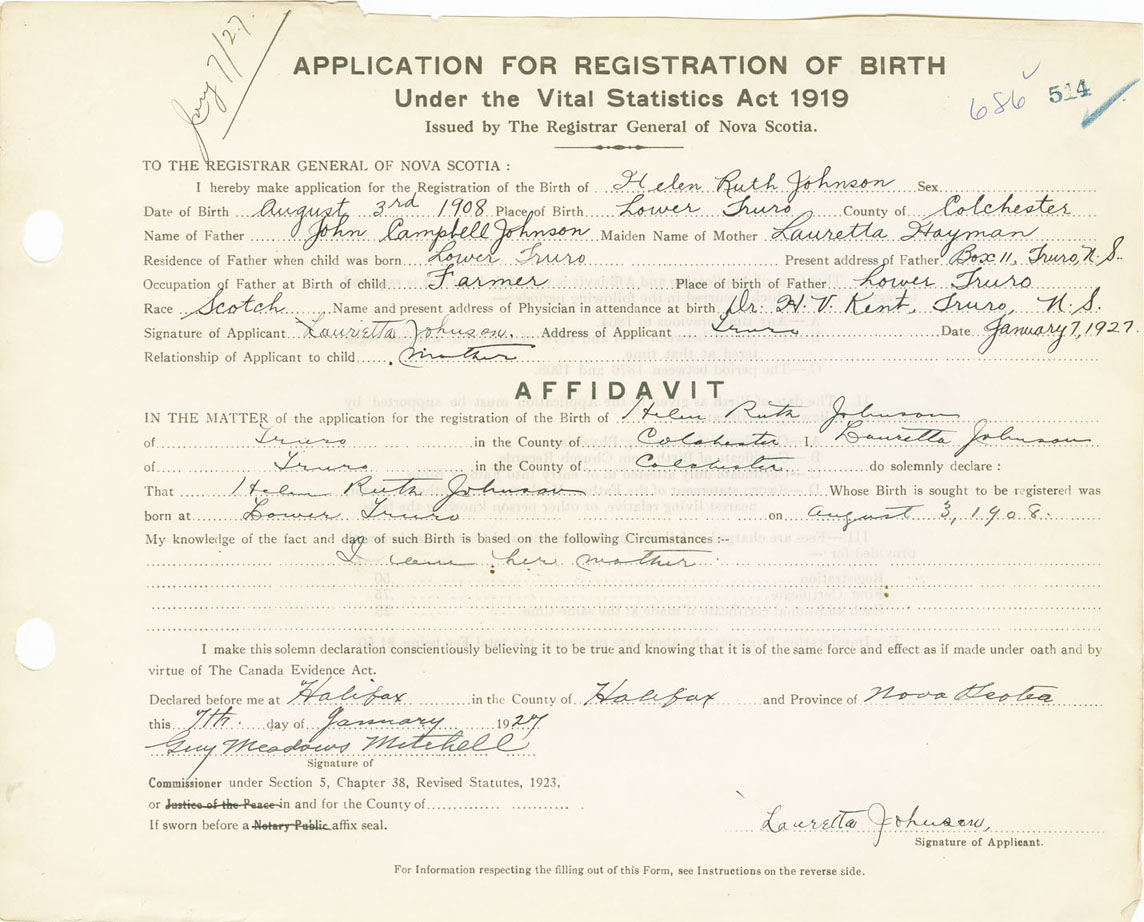 Jany 7/27
APPLICATION FOR REGISTRATION OF BIRTH
Under the Vital Statistics Act 1919
686 514
Issued by The Registrar General of Nova Scotia.
TO THE REGISTRAR GENERAL OF NOVA SCOTIA :
I hereby make application for the Registration of the Birth of Helen Ruth Johnson Sex
Date of Birth August 3rd 1908 Place of Birth Lower Truro County of Colchester
Name of Father John Campbell Johnson Maiden Name of Mother Lauretta Hayman
Residence of Father when child was born Lower Truro Present address of Father Box 11, Truro, N.S.
Occupation of Father at Birth of child Farmer Place of birth of Father Lower Truro
Race Scotch Name and present address of Physician in attendance at birth Dr. H. V. Kent, Truro, N. S.
Signature of Applicant Lauretta Johnson. Address of Applicant Truro Date January 7, 1927.
Relationship of Applicant to child mother
AFFIDAVIT
IN THE MATTER of the application for the registration of the Birth of Helen Ruth Johnson
of Truro in the County of Colchester I, Lauretta Johnson
of Truro in the County of Colchester do solemnly declare :
That Helen Ruth Johnson Whose Birth is sought to be registered was
born at Lower Truro on August 3, 1908.
My knowledge of the fact and date of such Birth is based on the following Circumstances :--
I am her mother
I make this solemn declaration conscientiously believing it to be true and knowing that it is of the same force and effect as if made under oath and by
virtue of The Canada Evidence Act.
Declared before me at Halifax in the County of Halifax and Province of Nova Scotia
this 7th. day of January 1927
Guy Meadows Mitchell
Signature of
Commissioner under Section 5, Chapter 38, Revised Statutes, 1923,
or Justice of the Peace in and for the County of
If sworn before a Notary Public affix seal.
Lauretta Johnson,
Signature of Applicant.
For Information respecting the filling out of this Form, see Instructions on the reverse side.